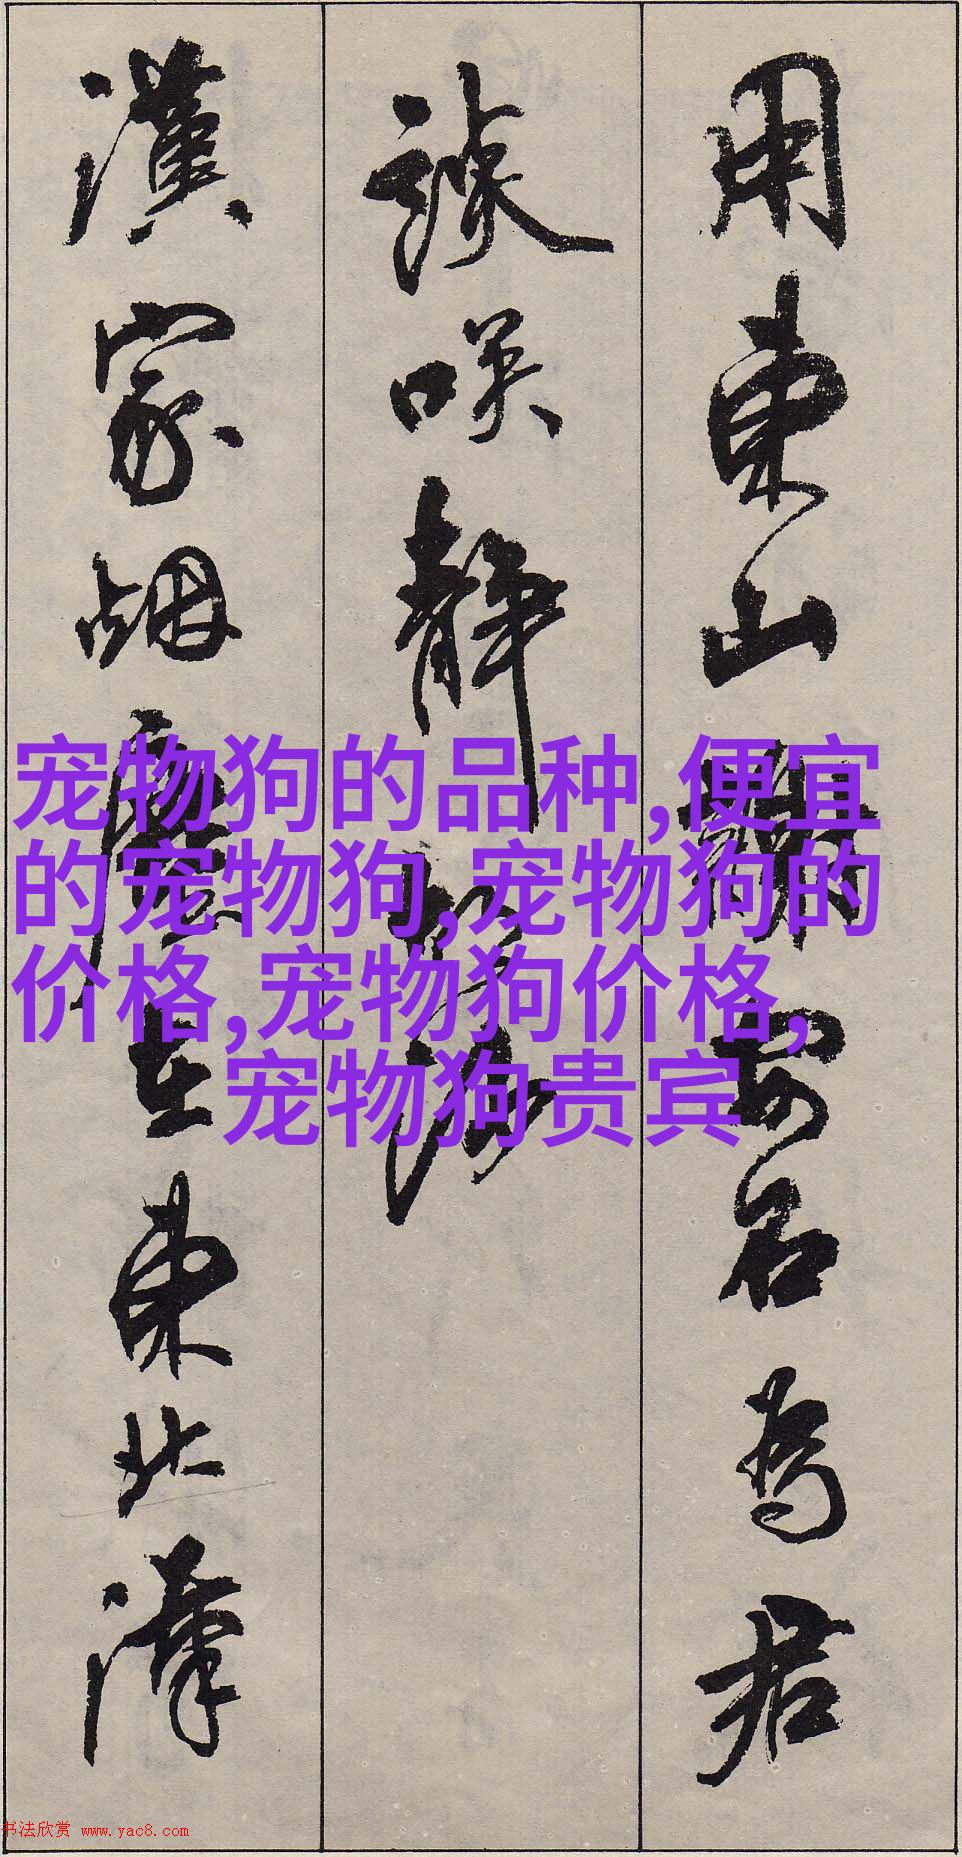 用東山謝安石為君
談笑靜胡沙
漢家烟塵在東北漢
宠物狗的品种,便宜
的宠物狗,宠物狗的
价格,宠物狗价格,
宠物狗贵宾
书法欣赏 www.yac8.com